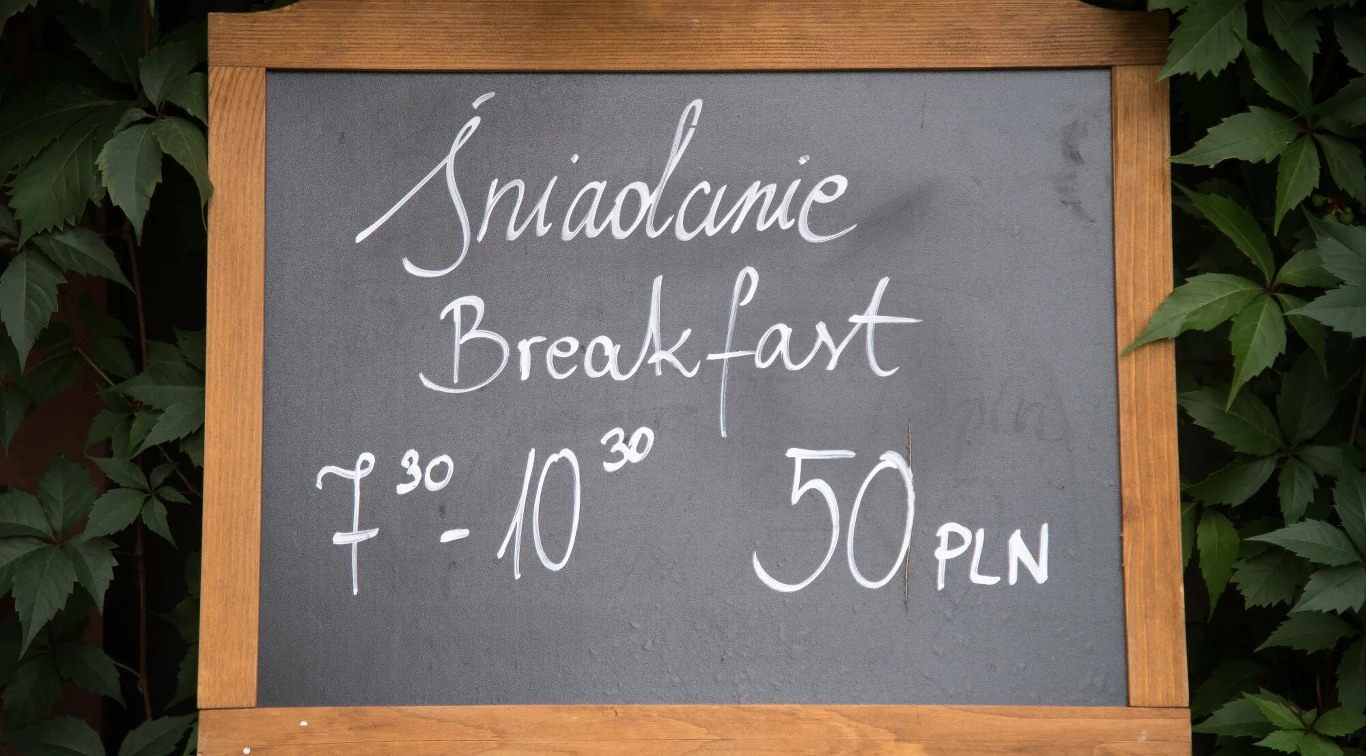 Śniadanie
Breakfast
7³⁰ - 10³⁰ 50 PLN